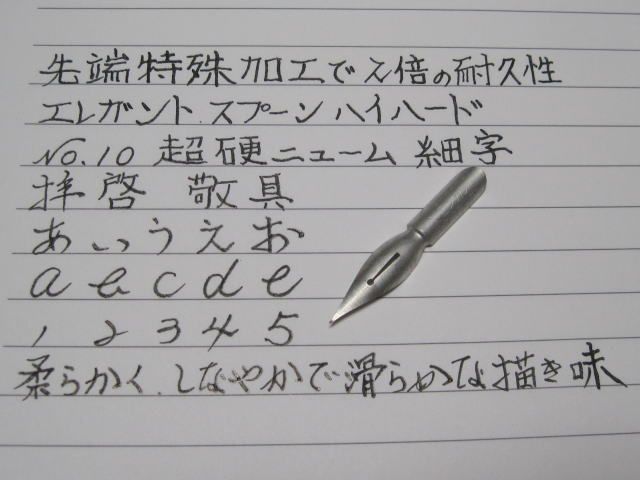 先端特殊加工で2倍の耐久性
エレガント.スプーンハイハード
No.10 超硬ニューム 細字
拝啓 敬具
あいうえお
a b c d e
1 2 3 4 5
柔らかく.しなやかで滑らかな描き味